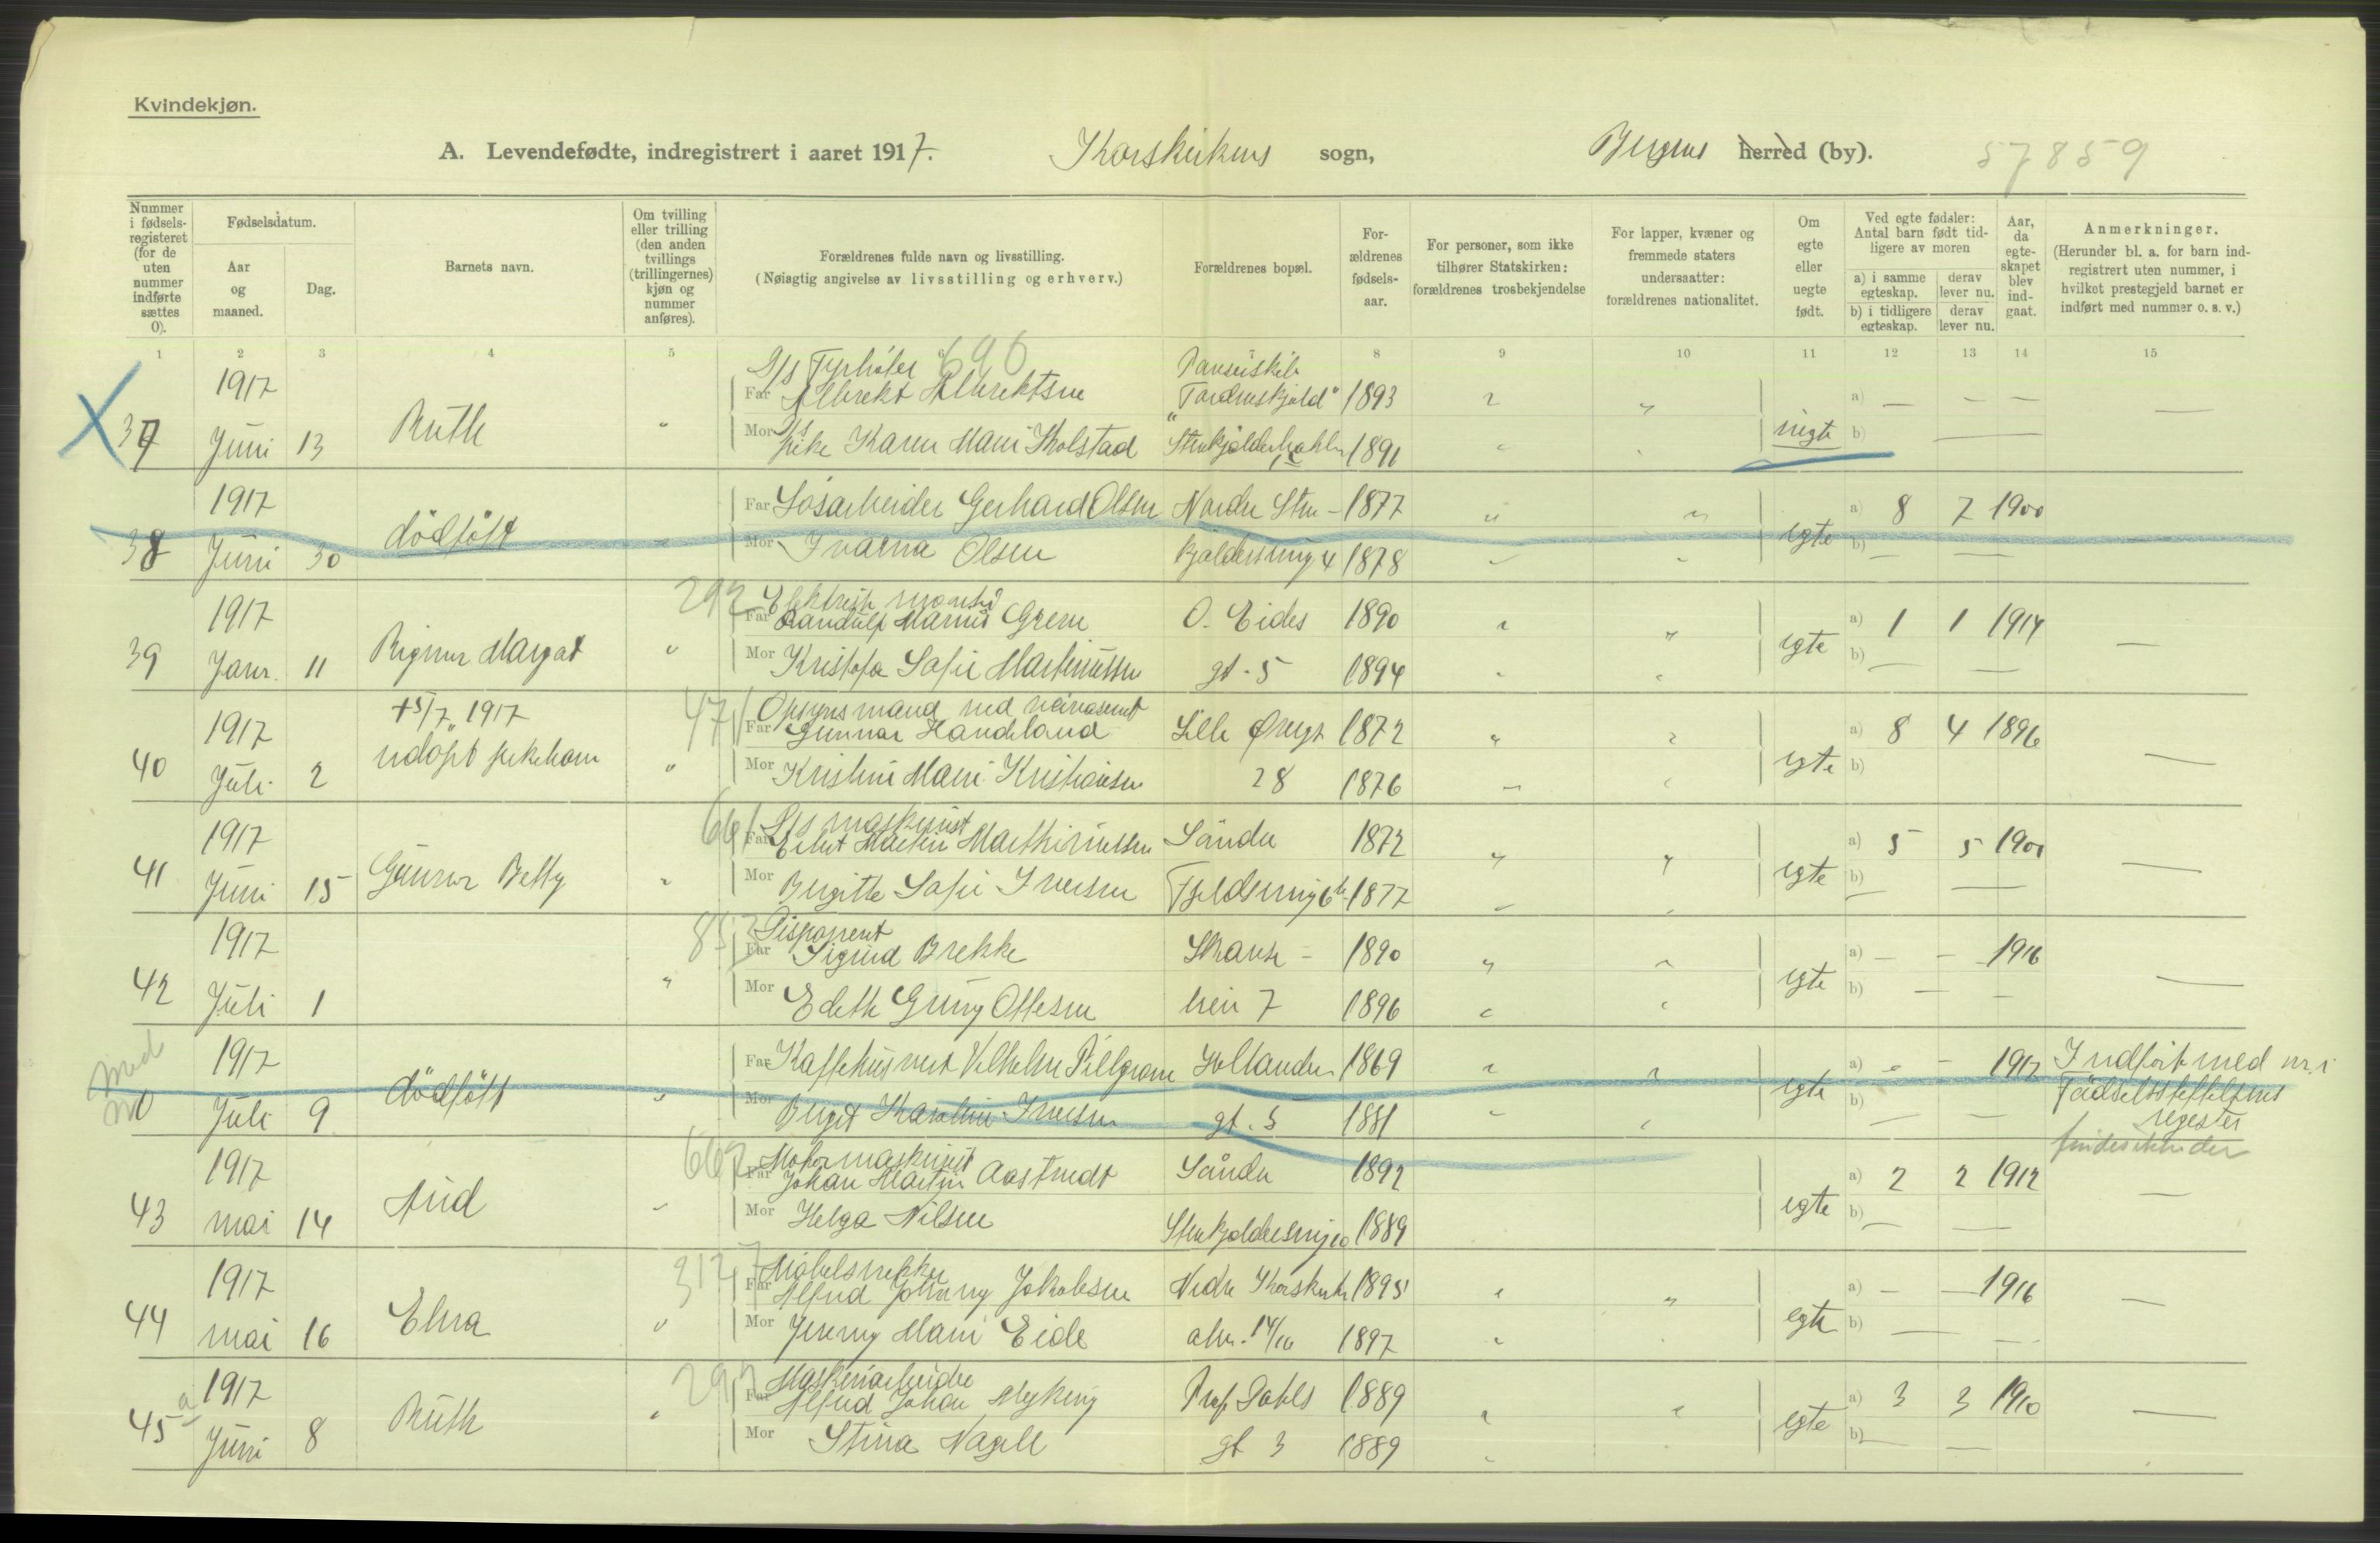 Kvindekjøn.
A. Levendefødte, indregistrert i aaret 1917. Korskirkens sogn, Bergens herred (by). 57859
Nummer i fødsels-registeret (for de uten nummer indførte sættes 0).
Fødselsdatum.
Aar og maaned.
Dag.
Barnets navn.
Om tvilling eller trilling (den anden tvillings (trillingernes) kjøn og nummer anføres).
Forældrenes fulde navn og livsstilling.
(Nøiagtig angivelse av livsstilling og erhverv.)
Forældrenes bopæl.
For-ældrenes fødsels-aar.
For personer, som ikke tilhører Statskirken: forældrenes trosbekjendelse
For lapper, kvæner og fremmede staters undersaatter: forældrenes nationalitet.
Om egte eller uegte født.
Ved egte fødsler: Antal barn født tid-ligere av moren
a) i samme egteskap. derav lever nu.
b) i tidligere egteskap. derav lever nu.
Aar, da egte-skapet blev ind-gaat.
Anmerkninger.
(Herunder bl. a. for barn ind-registrert uten nummer, i hvilket prestegjeld barnet er indført med nummer o. s. v.)
1 2 3 4 5 6 8 9 10 11 12 13 14 15
1917 D/s Fyrbøter 690 Panserskib
Far Albrekt Albrektsen "Tordenskjold" 1893 a) — — —
37 Juni 13 Ruth " Mor pike Karen Marie Kolstad 1891 uegte b) —
1917 Far Løsarbeider Gerhard Olsen Nordre Sten- 1877 " " a) 8 7 1900
38 Juni 30 dødfødt Mor Ivarna Olsen kjeldersmug 4 1878 egte b) — —
1917 292 Elektrisk montør
Far Randulf Marius Grene O. Eides 1890 " " a) 1 1 1914
39 Janr. 11 Rigmor Margot " Mor Kristofa Sofie Martinussen gt. 5 1894 egte b) — — —
1917 +5/7 1917 471 Opsynsmand ved veivæsenet
Far Gunnar Handeland Lille Øvregt 1872 " " a) 8 4 1896
40 Juli 2 udøpt pikebarn " Mor Kristine Marie Kristiansen 28 1876 egte b) —
1917 661 D/s maskinist
Far Martin Søndre 1872 " " a) 5 5 1900
41 Juni 15 Gunvor Betty " Mor Birgitte Sofie Iversen 1877 egte b) — — —
1917 853 Disponent
Far Sigurd Brekke Skanse- 1890 " " a) — — 1916
42 Juli 1 " Mor Edith Gunny Ottesen veien 7 1896 egte b) — — —
1917 Far Vilhelm Pillgram Hollander 1869 " " a) — — 1917 Indført med nr. i
0 Juli 9 dødfødt " Mor Birgit Karoline Iversen gt. 5 1881 egte b) — — Fødselsstiftelsens
register
1917 662 Motormaskinist findes ikke der
Far Johan Martin Aastvedt Søndre 1892 a) 2 2 1912
43 mai 14 Aud " Mor Helga Nilsen Stenkjeldersmug 10 1889 egte b) — — —
1917 Møbelsnekker
Far Alfred Johnny Jakobsen Nedre Korskirke 1895 " " a) — — 1916
44 mai 16 Elna " Mor Jenny Marie Eide alm. 14/16 1897 egte b) — — —
1917 292 Maskinarbeider
Far Alfred Johan Myking Prof. Dahls 1889 " " a) 3 3 1910
45 a Juni 8 Ruth " Mor Stina Nagell gt 3 1889 egte b) — — —